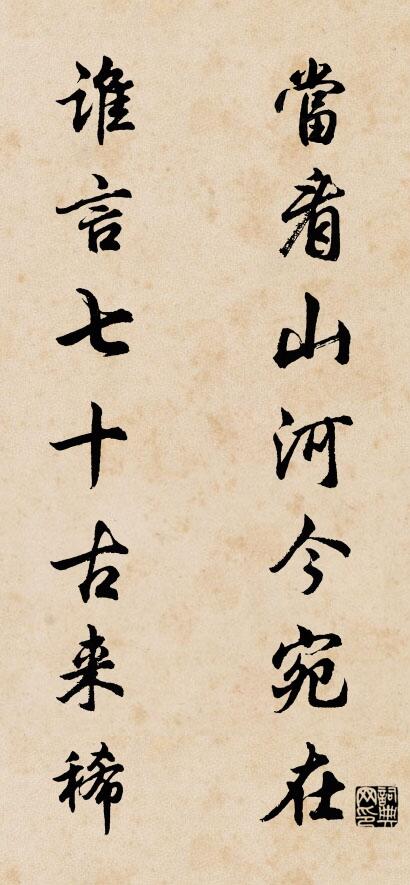 當看山河今宛在
谁言七十古来稀
詞典网印